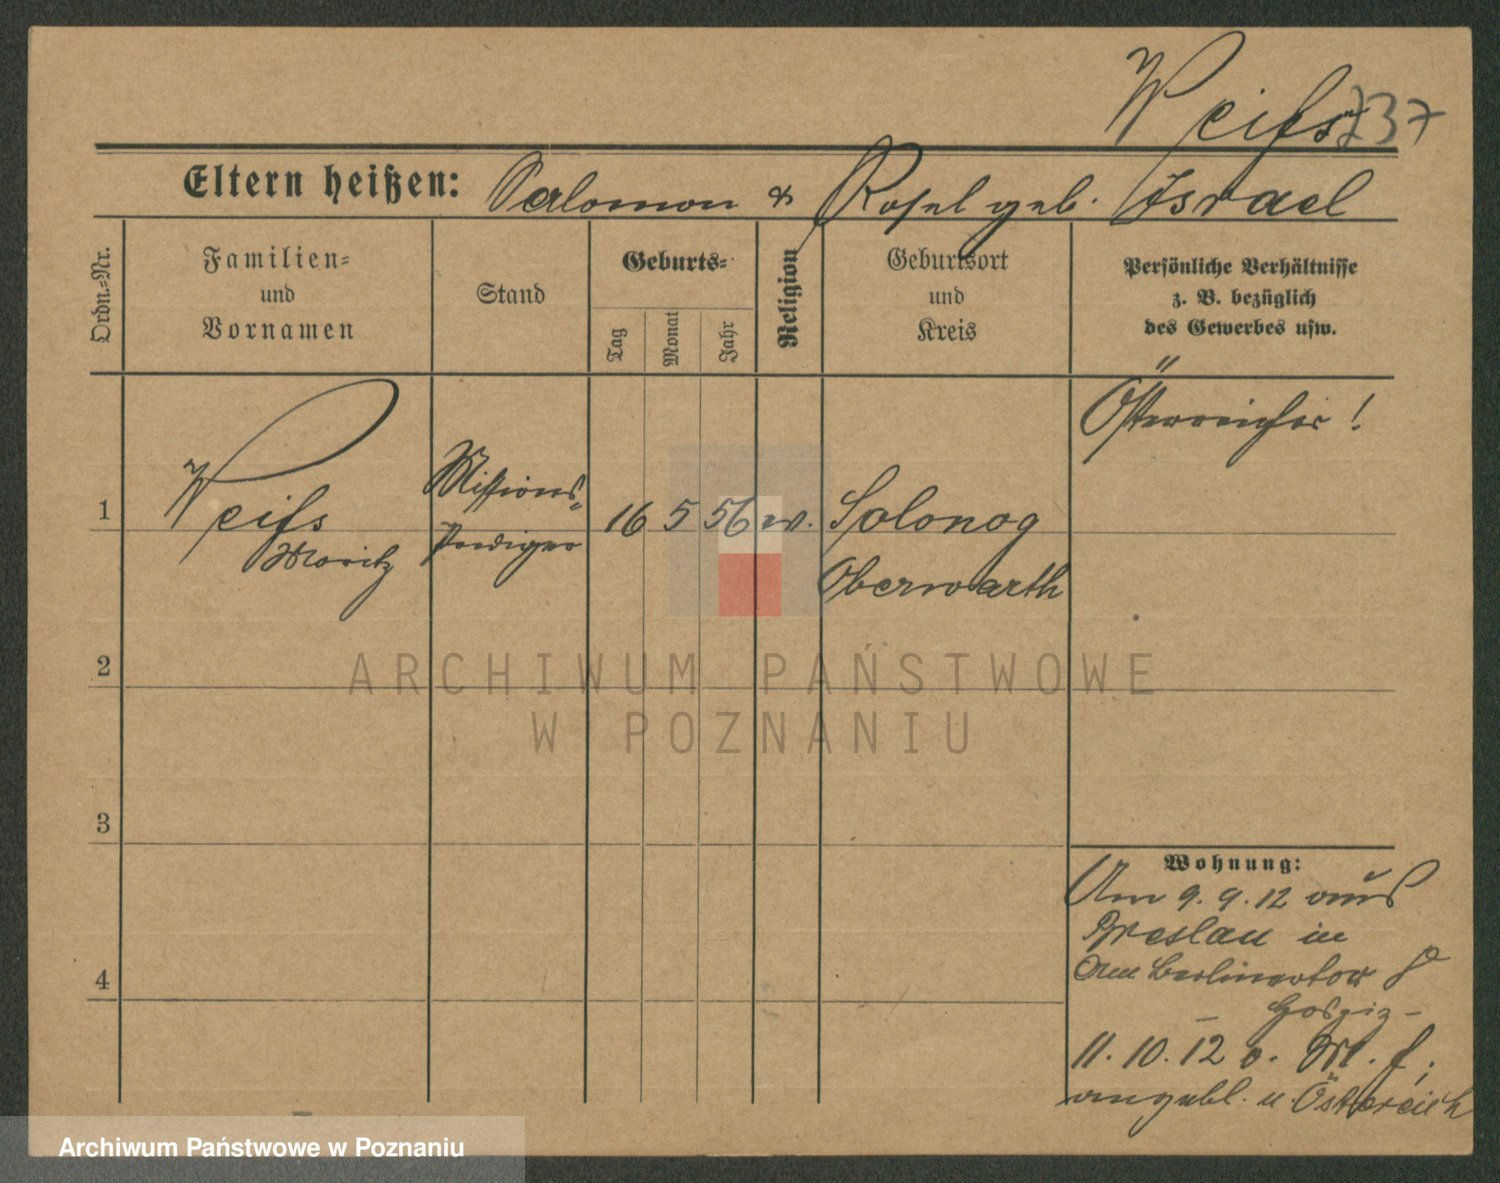 Weiß 737
Eltern heißen: Salomon & Rosel geb. Israel
Ordn.-Nr.
Familien- und Vornamen
Stand
Geburts-
Tag
Monat
Jahr
Religion
Geburtsort und Kreis
Persönliche Verhältnisse
z. B. bezüglich
des Gewerbes usw.
Österreicher!
1
Weiß
Moritz
Missions-
Prediger
16 5 56
Solonog
Oberwarth
2
3
4
Wohnung:
Am 9. 9. 12 aus
Breslau in
Am Berlinertor 8
Hospiz-
11. 10. 12 o. M. f.
angebl. n. Österreich
ARCHIWUM PAŃSTWOWE
W POZNANIU
Archiwum Państwowe w Poznaniu